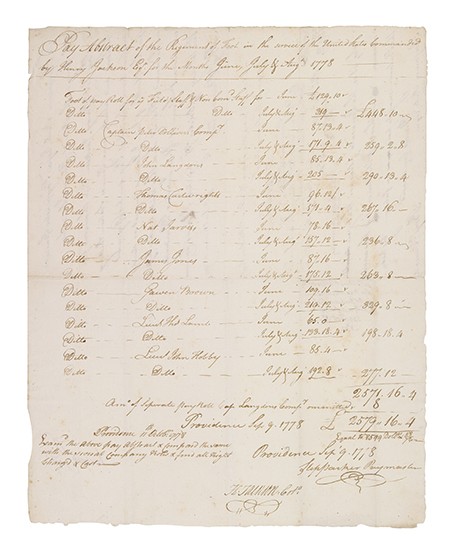 Pay Abstract of the Regiment of Foot in the service of the United States Commanded
by Henry Jackson Esqr for the Months June, July & Augt 1778
Foot of pay Roll for ye Field Staff & Non Comd Staff for June £129.10
Ditto Ditto July & Augt 319 £448.10
Ditto Captain John Compy June 87.13.4
Ditto Ditto July & Augt 171.9.4 259.2.8
Ditto John Langdons June 85.13.4
Ditto Ditto July & Augt 205 290.13.4
Ditto Thomas Cartwrights June 96.12
Ditto Ditto July & Augt 171.4 267.16
Ditto Nat Jarvis June 78.16
Ditto Ditto July & Augt 157.12 236.8
Ditto James Jones June 87.16
Ditto Ditto July & Augt 175.12 263.8
Ditto Gawen Brown June 109.16
Ditto Ditto July & Augt 329.8
Ditto Lieut June 25.0
Ditto Ditto July & Augt 173.18.4 198.18.4
Ditto Lieut John Hobby June 85.4
Ditto Ditto July & Augt 192.8 277.12
2571.16.4
Amt of Separate pay Roll Cap Langdons Compy omitted 8
Providence Sep 9. 1778 £ 2579.16.4
Equal to 8599 Dollrs
Providence 1778
Providence Sep 9. 1778
Exam'd the above pay Abstract & compared the same
with the several Company Rolls & find all Right
Charged & Cast
Parker Paymaster
H Jackson Colo